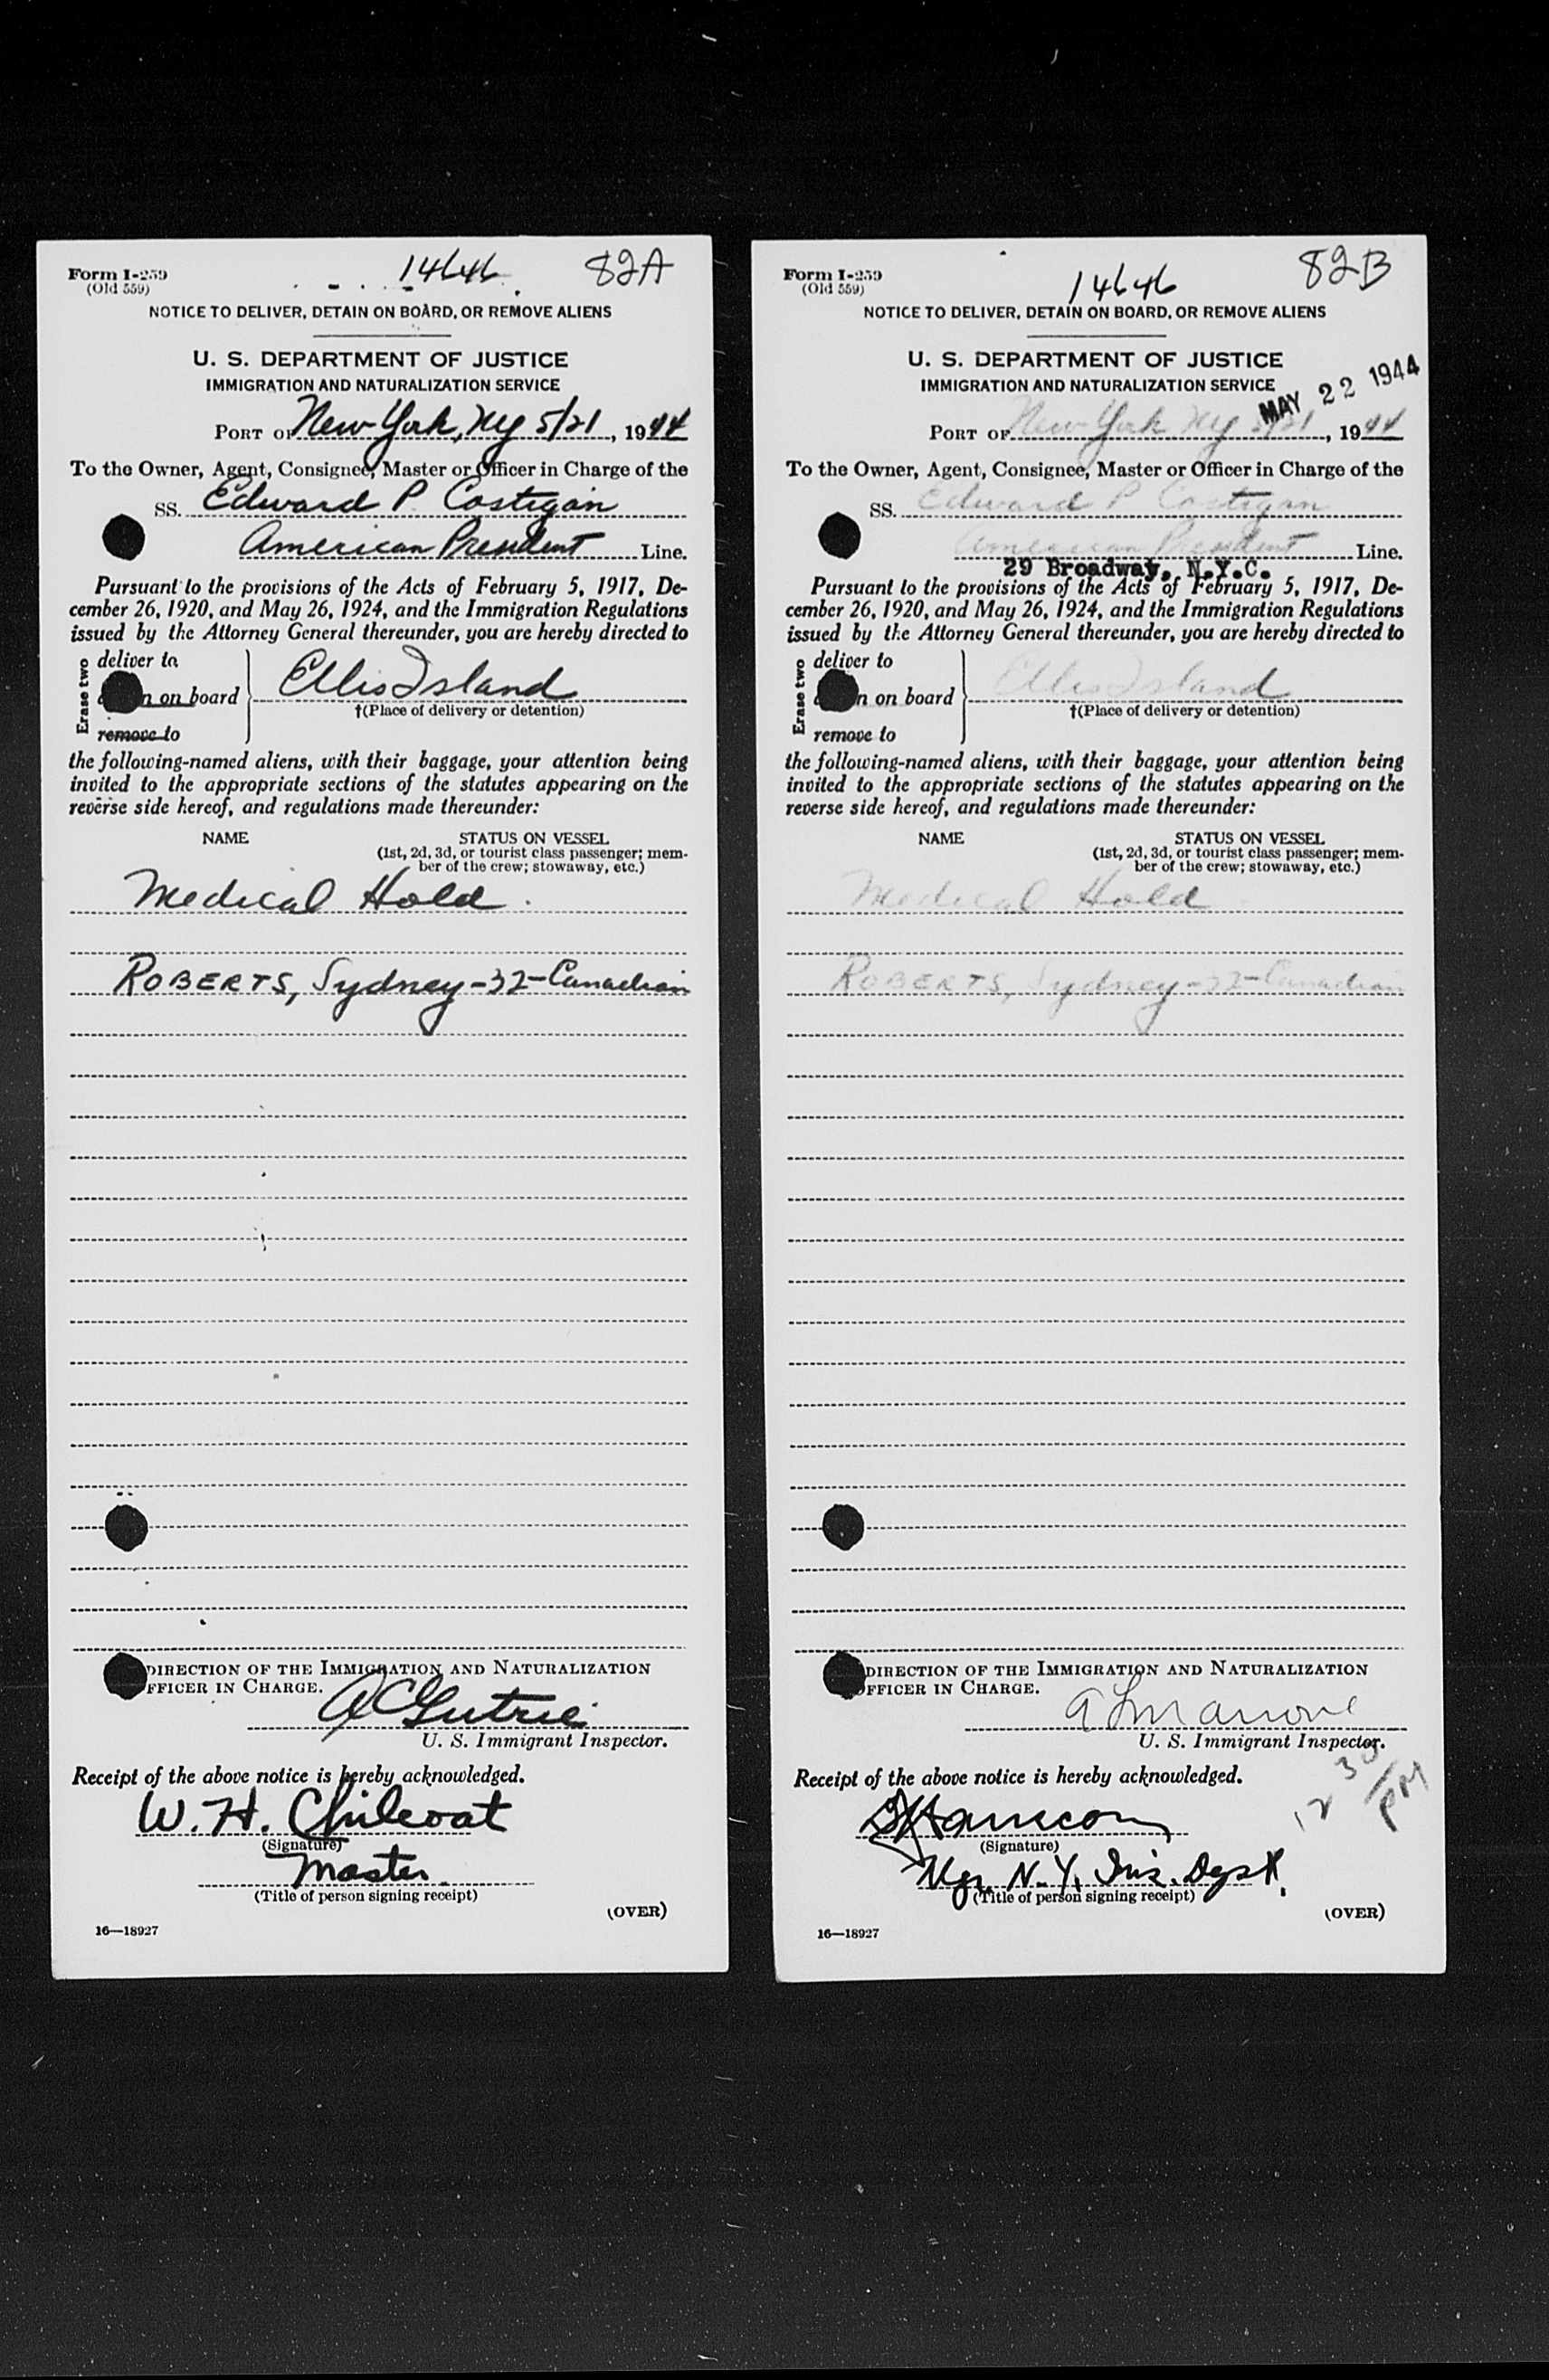 Form I-259
(Old 559)
14646
82A
NOTICE TO DELIVER, DETAIN ON BOARD, OR REMOVE ALIENS
U. S. DEPARTMENT OF JUSTICE
IMMIGRATION AND NATURALIZATION SERVICE
PORT OF New York, NY 5/21, 1944
To the Owner, Agent, Consignee, Master or Officer in Charge of the
SS. Edward P. Costigan
American President Line.
Pursuant to the provisions of the Acts of February 5, 1917, De-
cember 26, 1920, and May 26, 1924, and the Immigration Regulations
issued by the Attorney General thereunder, you are hereby directed to
Erase two
deliver to
n on board
remove to
Ellis Island
†(Place of delivery or detention)
the following-named aliens, with their baggage, your attention being
invited to the appropriate sections of the statutes appearing on the
reverse side hereof, and regulations made thereunder:
NAME STATUS ON VESSEL
(1st, 2d, 3d, or tourist class passenger; mem-
ber of the crew; stowaway, etc.)
Medical Hold
ROBERTS, Sydney-32-Canadian
DIRECTION OF THE IMMIGRATION AND NATURALIZATION
FFICER IN CHARGE.
A C Gutrie
U. S. Immigrant Inspector.
Receipt of the above notice is hereby acknowledged.
W. H. Chilcoat
(Signature)
Master
(Title of person signing receipt)
(OVER)
16—18927
Form I-259
(Old 559)
14646
82B
NOTICE TO DELIVER, DETAIN ON BOARD, OR REMOVE ALIENS
U. S. DEPARTMENT OF JUSTICE
IMMIGRATION AND NATURALIZATION SERVICE
MAY 22 1944
PORT OF New York, NY 5/21, 1944
To the Owner, Agent, Consignee, Master or Officer in Charge of the
SS. Edward P. Costigan
American President Line.
29 Broadway, N.Y.C.
Pursuant to the provisions of the Acts of February 5, 1917, De-
cember 26, 1920, and May 26, 1924, and the Immigration Regulations
issued by the Attorney General thereunder, you are hereby directed to
Erase two
deliver to
n on board
remove to
Ellis Island
†(Place of delivery or detention)
the following-named aliens, with their baggage, your attention being
invited to the appropriate sections of the statutes appearing on the
reverse side hereof, and regulations made thereunder:
NAME STATUS ON VESSEL
(1st, 2d, 3d, or tourist class passenger; mem-
ber of the crew; stowaway, etc.)
Medical Hold
ROBERTS, Sydney-32-Canadian
DIRECTION OF THE IMMIGRATION AND NATURALIZATION
FFICER IN CHARGE.
U. S. Immigrant Inspector.
Receipt of the above notice is hereby acknowledged.
12 30 PM
(Signature)
Mgr. N. Y. Ins. Dept.
(Title of person signing receipt)
(OVER)
16—18927